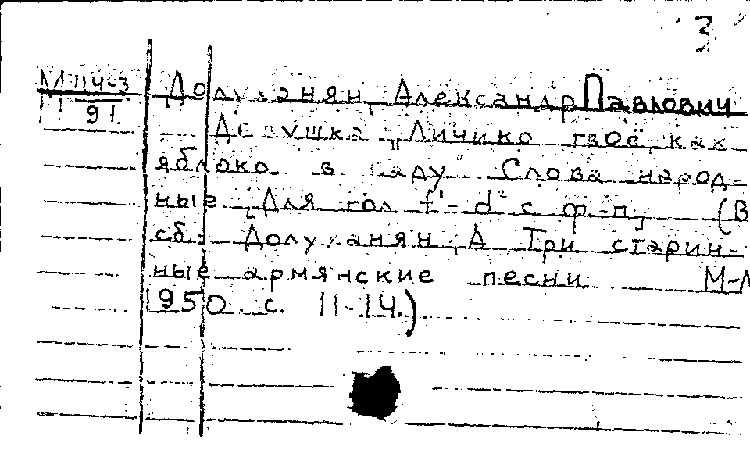 3
М П4-3 Долуханян, Александр Павлович
91
Девушка „Личико твоё, как
яблоко в саду" Слова народ-
ные [Для гол f'-d" с ф-п.] (В
сб: Долуханян, А Три старин-
ные армянские песни М-Л
1950 с. 11-14.)